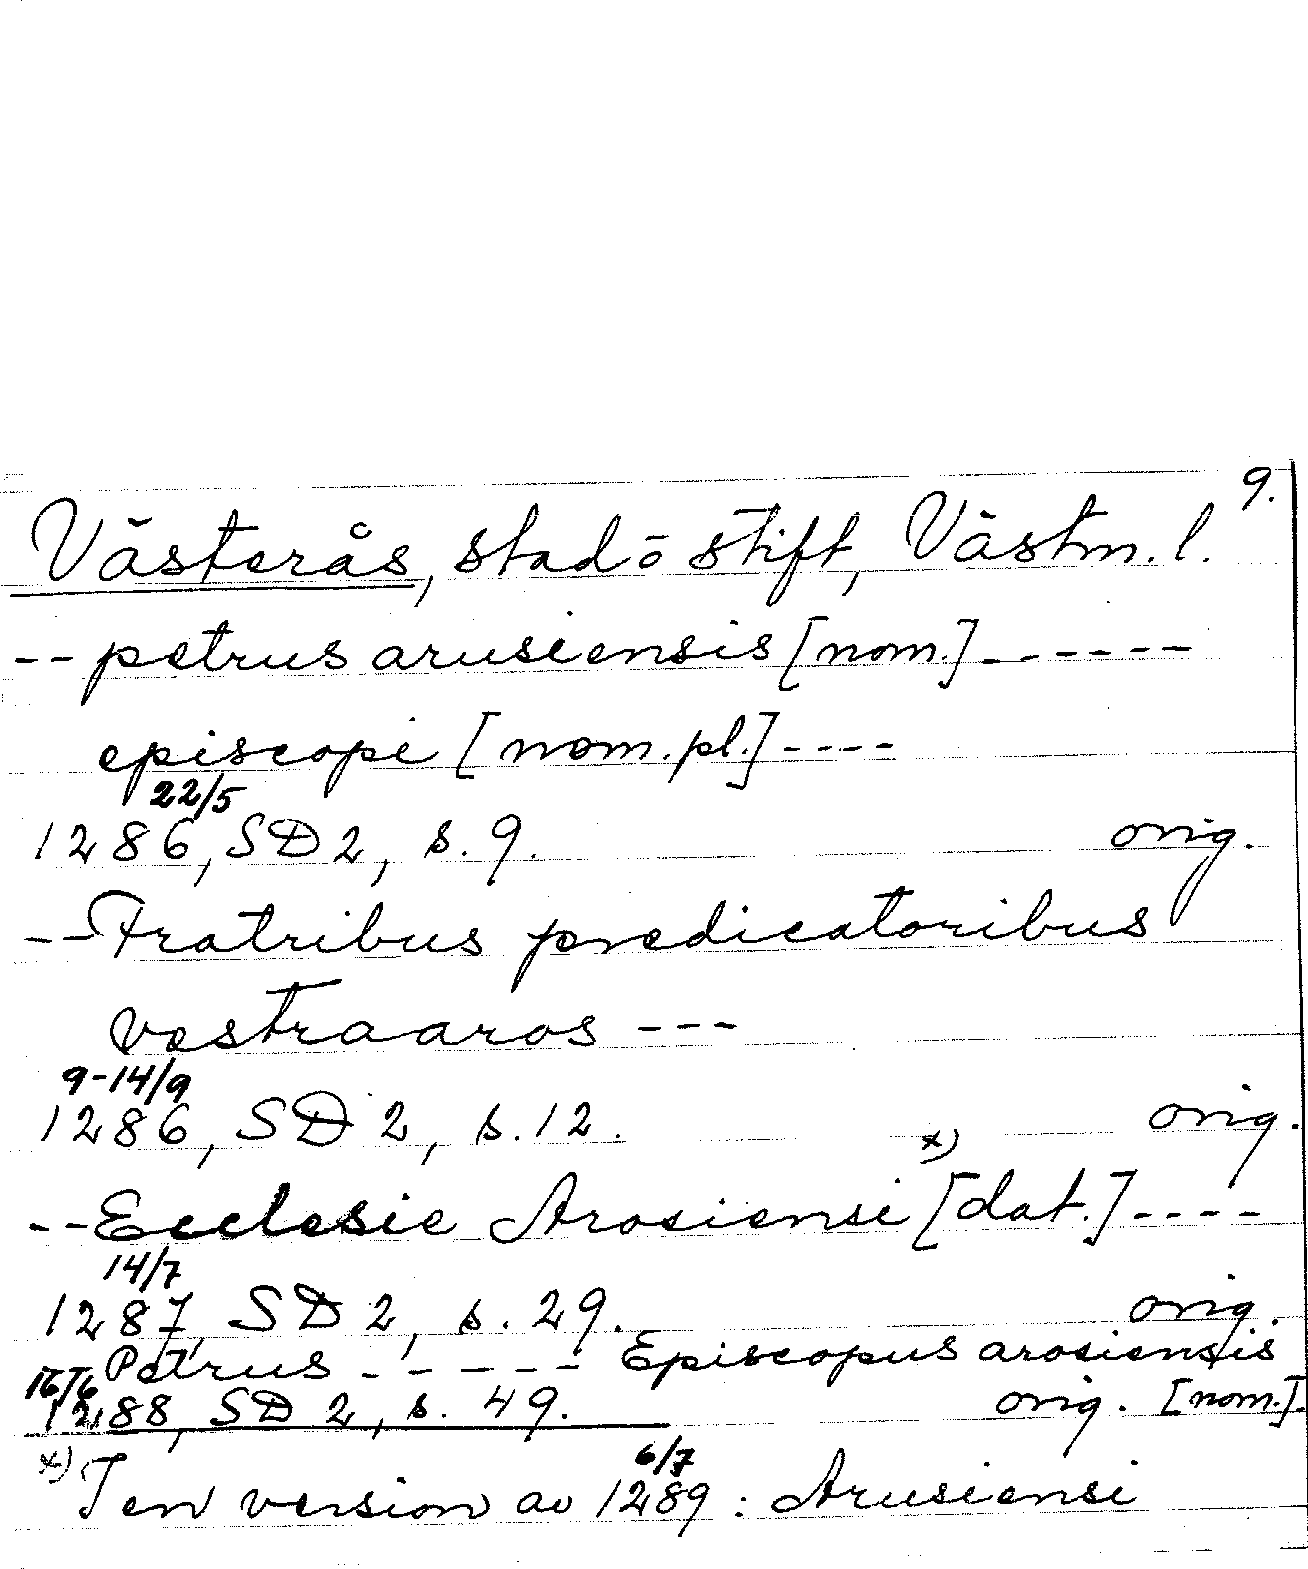 9.
Västerås, stad ō stift, Västm. l.
-- petrus arusiensis [nom.] ------
episcopi [nom. pl.] ----
22/5
1286, SD 2, s. 9. orig.
-- Fratribus predicatoribus
vestraaros ---
9-14/9
1286, SD 2, s. 12. orig.
-- Ecclesie Arosiensi x) [dat.] ----
14/7
1287, SD 2, s. 29. orig.
Petrus ----- Episcopus arosiensis
1288, SD 2, s. 49. orig. [nom.].
6/7
x) I en version av 1289 : Arusiensi